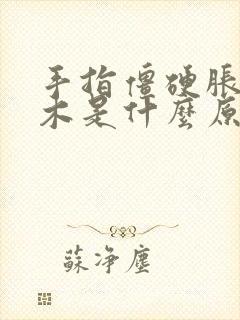 手指僵硬脹
木是什麼原
蘇净塵